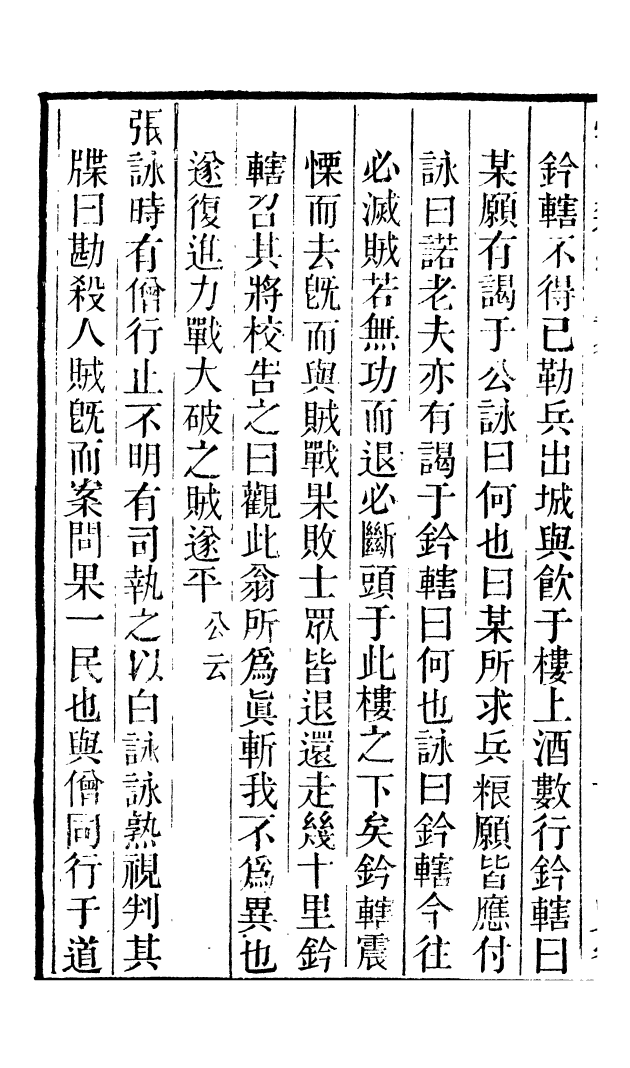 鈐轄不得已勒兵出城與飲于樓上酒數行鈐轄曰
某願有謁于公詠曰何也曰某所求兵粮願皆應付
詠曰諾老夫亦有謁于鈐轄曰何也詠曰鈐轄今往
必滅賊若無功而退必斷頭于此樓之下矣鈐轄震
慄而去旣而與賊戰果敗士眾皆退還走幾十里鈐
轄召其將校告之曰觀此翁所爲眞斬我不爲異也
遂復進力戰大破之賊遂平公云
張詠時有僧行止不明有司執之以白詠詠熟視判其
牒曰勘殺人賊旣而案問果一民也與僧同行于道